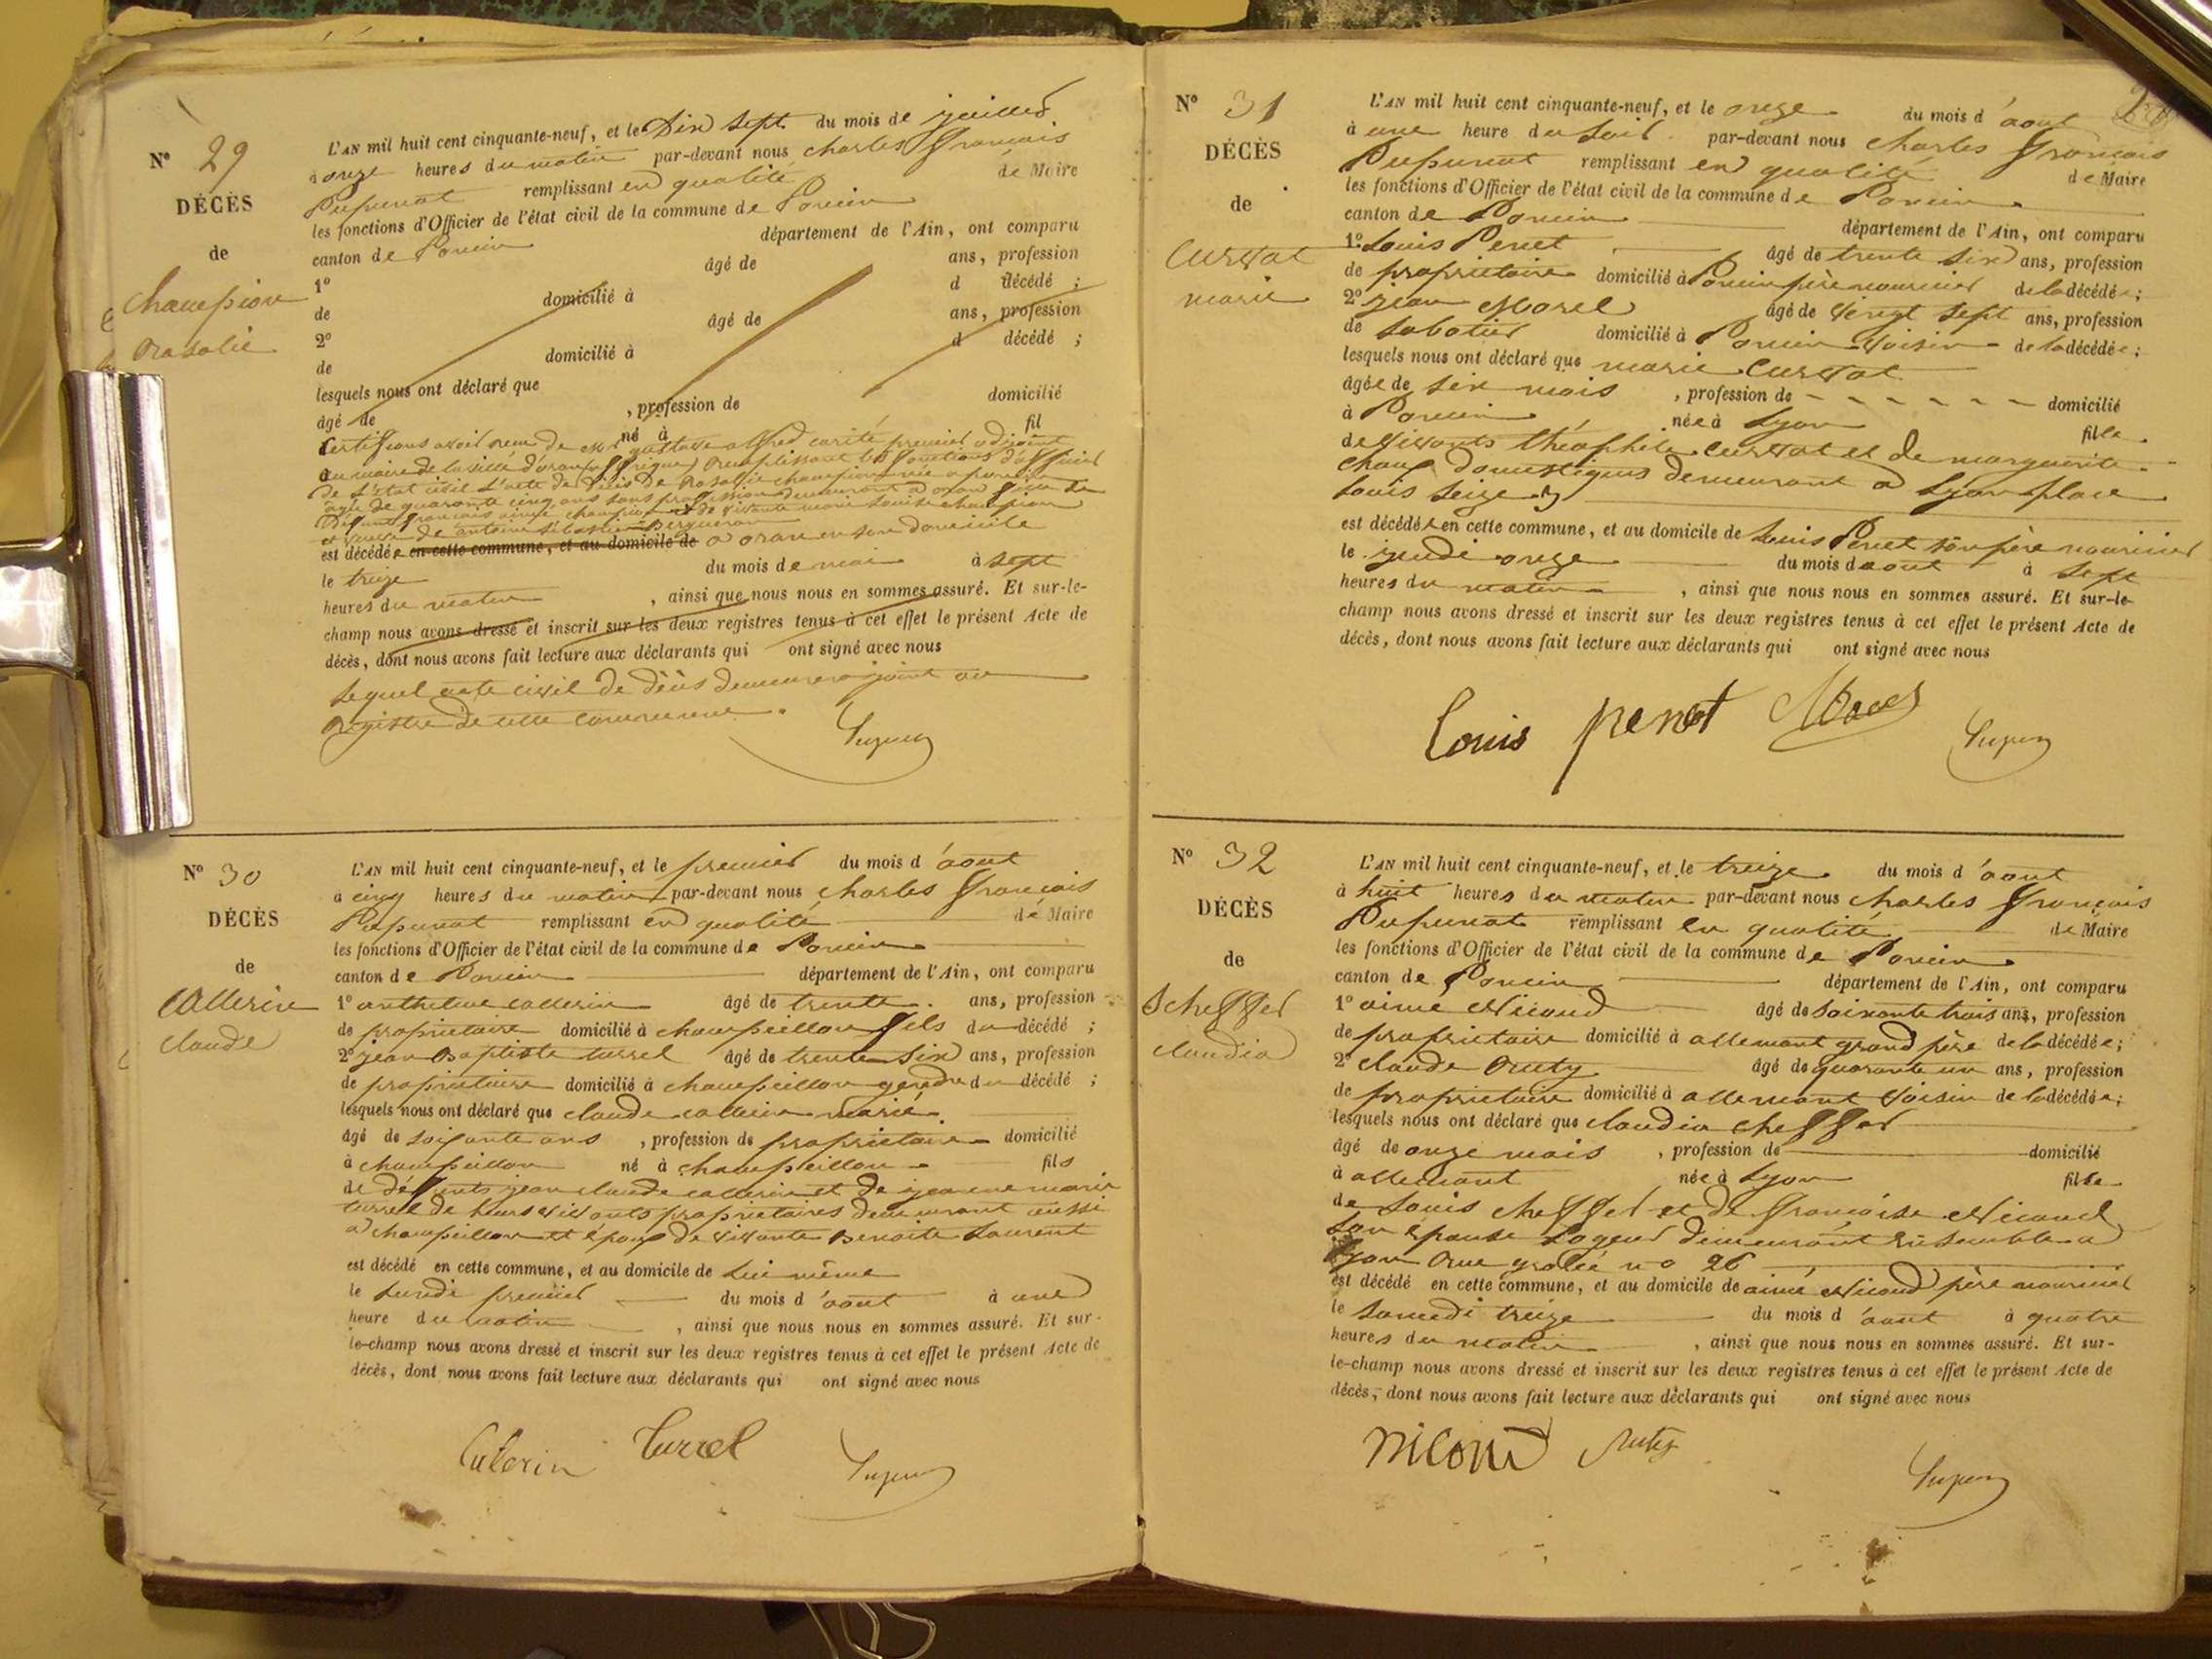 N° 29
DÉCÈS
de
Champion
Rosalie
L'AN mil huit cent cinquante-neuf, et le Dix Sept du mois de juillet
à onze heures du matin par-devant nous Charles François
Pupunat remplissant en qualité de Maire
les fonctions d'Officier de l'état civil de la commune de Poncin
canton de Poncin département de l'Ain, ont comparu
1° âgé de ans, profession
de domicilié à d décédé ;
2° âgé de ans, profession
de domicilié à d décédé ;
lesquels nous ont déclaré que
âgé de , profession de domicilié
né à fil
Certifions avoir reçu de Mr gustave alfred carité premier adjoint
au maire de la ville d'oran (affrique) Remplissant les fonctions d'officier
de L'état civil L'acte de décès de Rosalie champion née a poncin
âgée de quarante cinq ans sans profession demeurant a oran fille de
Défunt françois aimé champion et de vivante marie Louise champion
et veuve de antoine sébastien
est décédée en cette commune, et au domicile de a oran en son domicile
le treize du mois de mai à sept
heures du matin , ainsi que nous nous en sommes assuré. Et sur-le-
champ nous avons dressé et inscrit sur les deux registres tenus à cet effet le présent Acte de
décès, dont nous avons fait lecture aux déclarants qui ont signé avec nous
Lequel acte civil de décès demeurera joint au
Registre de cette commune.
N° 30
DÉCÈS
de
Callerin
claude
L'AN mil huit cent cinquante-neuf, et le premier du mois d'août
à cinq heures du matin par-devant nous Charles François
Pupunat remplissant en qualité de Maire
les fonctions d'Officier de l'état civil de la commune de Poncin
canton de Poncin département de l'Ain, ont comparu
1° anthelme callerin âgé de trente ans, profession
de propriétaire domicilié à champeillon fils du décédé ;
2° jean Baptiste turrel âgé de trente six ans, profession
de propriétaire domicilié à champeillon gendre du décédé ;
lesquels nous ont déclaré que claude callerin marié
âgé de soixante ans , profession de propriétaire domicilié
à champeillon né à champeillon fils
de défunts jean claude callerin et de jeanne marie
turrel de leurs vivants propriétaires demeurant aussi
a champeillon et époux de vivante Benoite Laurent
est décédé en cette commune, et au domicile de lui même
le Lundi premier du mois d'août à une
heure du matin , ainsi que nous nous en sommes assuré. Et sur-
le-champ nous avons dressé et inscrit sur les deux registres tenus à cet effet le présent Acte de
décès, dont nous avons fait lecture aux déclarants qui ont signé avec nous
Calerin Turrel
N° 31
DÉCÈS
de
Curvat
marie
L'AN mil huit cent cinquante-neuf, et le onze du mois d'août
à une heure du soir par-devant nous Charles François
Pupunat remplissant en qualité de Maire
les fonctions d'Officier de l'état civil de la commune de Poncin
canton de Poncin département de l'Ain, ont comparu
1° Louis Penet âgé de trente six ans, profession
de propriétaire domicilié à Poncin père nouricier de la décédée ;
2° jean Morel âgé de vingt sept ans, profession
de sabotier domicilié à Poncin voisin de la décédée ;
lesquels nous ont déclaré que marie Curvat
âgée de six mois , profession de domicilié
à Poncin née à Lyon fille
de vivants théophile Curvat et de marguerite
chaux domestiques demeurant a Lyon place
Louis Seize 3
est décédée en cette commune, et au domicile de Louis Penet son père nouricier
le jeudi onze du mois d'août à sept
heures du matin , ainsi que nous nous en sommes assuré. Et sur-le-
champ nous avons dressé et inscrit sur les deux registres tenus à cet effet le présent Acte de
décès, dont nous avons fait lecture aux déclarants qui ont signé avec nous
Louis penet Morel
N° 32
DÉCÈS
de
Scheffer
claudia
L'AN mil huit cent cinquante-neuf, et le treize du mois d'août
à huit heures du matin par-devant nous Charles François
Pupunat remplissant en qualité de Maire
les fonctions d'Officier de l'état civil de la commune de Poncin
canton de Poncin département de l'Ain, ont comparu
1° aimé Nicoud âgé de soixante trois ans, profession
de propriétaire domicilié à allemant grand père de la décédée ;
2° claude Ruty âgé de quarante un ans, profession
de propriétaire domicilié à allemant voisin de la décédée ;
lesquels nous ont déclaré que claudia cheffer
âgé de onze mois , profession de domicilié
à allemant née à Lyon fille
de Louis cheffer et de françoise Nicoud
son épouse Logeur demeurant ensemble a
Lyon Rue grolée no 26
est décédé en cette commune, et au domicile de aimé Nicoud père nouricier
le Samedi treize du mois d'août à quatre
heures du matin , ainsi que nous nous en sommes assuré. Et sur-
le-champ nous avons dressé et inscrit sur les deux registres tenus à cet effet le présent Acte de
décès, dont nous avons fait lecture aux déclarants qui ont signé avec nous
niCoud Ruty